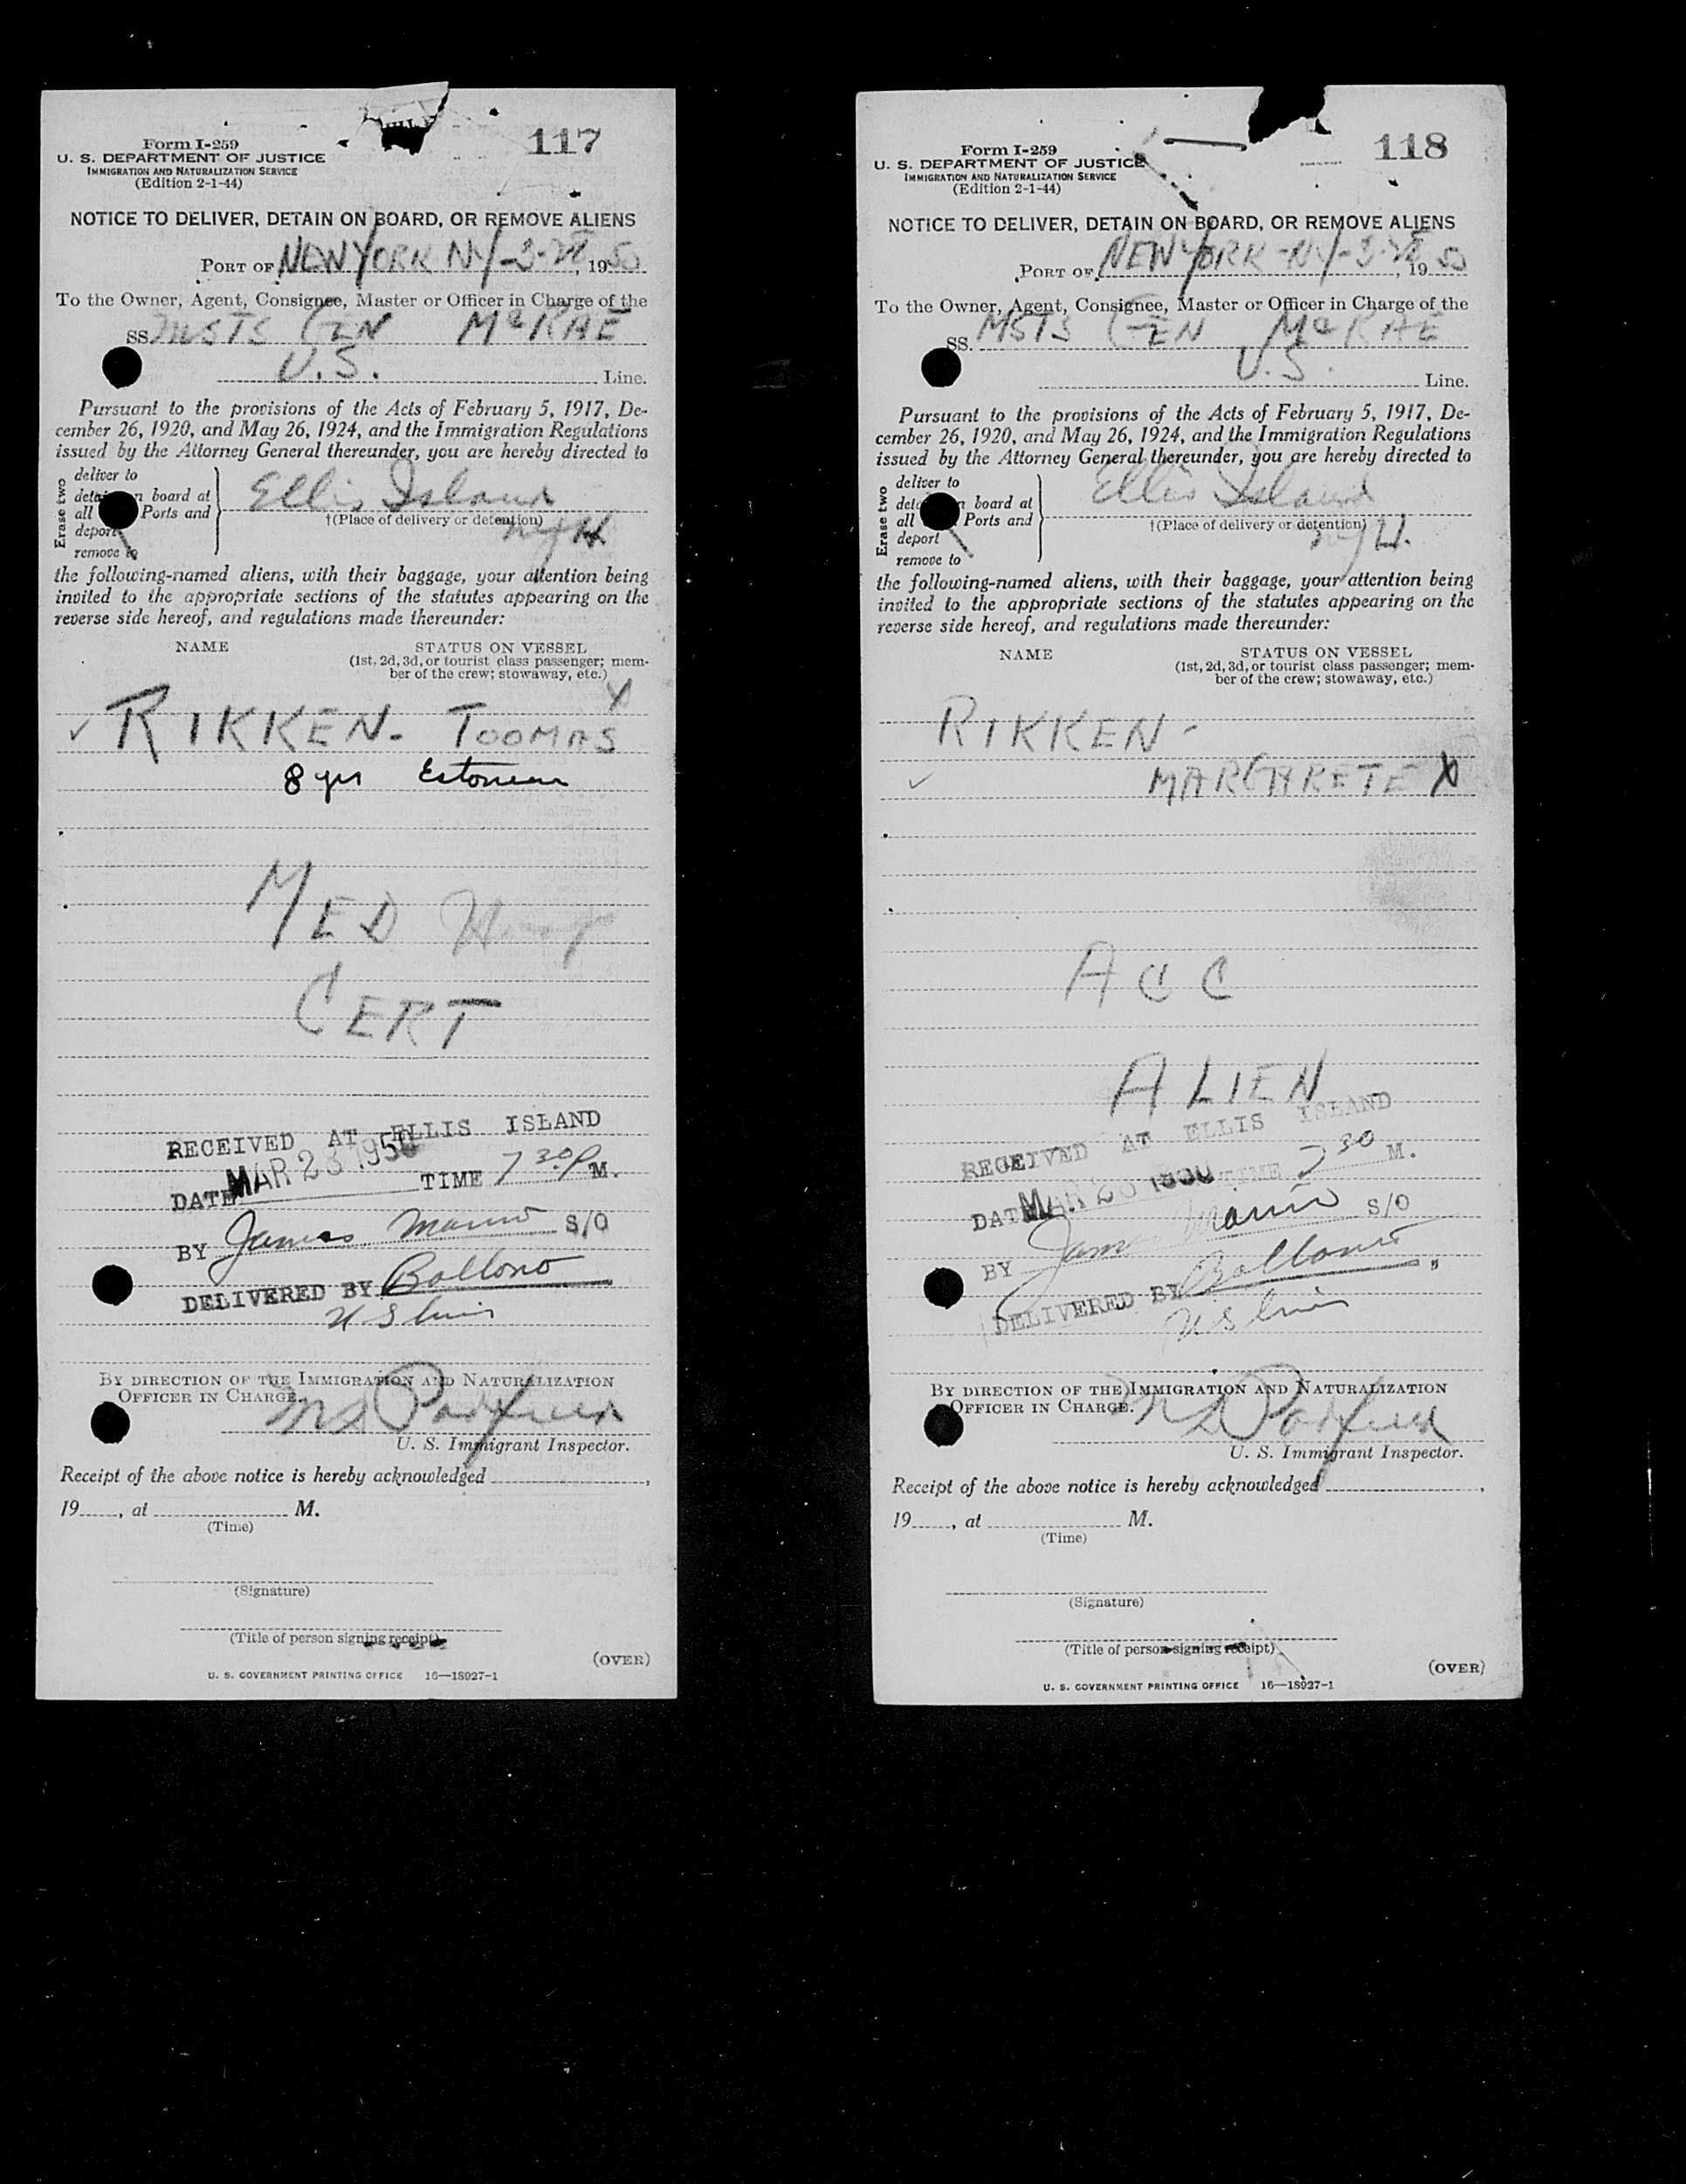 117
Form I-259
U. S. DEPARTMENT OF JUSTICE
IMMIGRATION AND NATURALIZATION SERVICE
(Edition 2-1-44)
NOTICE TO DELIVER, DETAIN ON BOARD, OR REMOVE ALIENS
PORT OF NEW YORK NY-3- , 1950
To the Owner, Agent, Consignee, Master or Officer in Charge of the
SS MSTS GEN McRAE
U.S. Line.
Pursuant to the provisions of the Acts of February 5, 1917, De-
cember 26, 1920, and May 26, 1924, and the Immigration Regulations
issued by the Attorney General thereunder, you are hereby directed to
Erase two
deliver to
board at
all Ports and
deport
remove to
Ellis Island
†(Place of delivery or detention)
NYH
the following-named aliens, with their baggage, your attention being
invited to the appropriate sections of the statutes appearing on the
reverse side hereof, and regulations made thereunder:
NAME STATUS ON VESSEL
(1st, 2d, 3d, or tourist class passenger; mem-
ber of the crew; stowaway, etc.)
X
✓ RIKKEN- TOOMAS
8 yrs Estonian
MED
CERT
RECEIVED AT ELLIS ISLAND
DATE MAR 23 1950 TIME 7 30 P M.
BY James S/O
DELIVERED BY
U S
BY DIRECTION OF THE IMMIGRATION AND NATURALIZATION
OFFICER IN CHARGE.
U. S. Immigrant Inspector.
Receipt of the above notice is hereby acknowledged ,
19 , at M.
(Time)
(Signature)
(Title of person signing receipt)
(OVER)
U. S. GOVERNMENT PRINTING OFFICE 16—18927-1
118
Form I-259
U. S. DEPARTMENT OF JUSTICE
IMMIGRATION AND NATURALIZATION SERVICE
(Edition 2-1-44)
NOTICE TO DELIVER, DETAIN ON BOARD, OR REMOVE ALIENS
PORT OF NEW YORK-NY-3- , 1950
To the Owner, Agent, Consignee, Master or Officer in Charge of the
SS. MSTS GEN McRAE
U.S. Line.
Pursuant to the provisions of the Acts of February 5, 1917, De-
cember 26, 1920, and May 26, 1924, and the Immigration Regulations
issued by the Attorney General thereunder, you are hereby directed to
Erase two
deliver to
board at
all Ports and
deport
remove to
Ellis Island
†(Place of delivery or detention)
NYH.
the following-named aliens, with their baggage, your attention being
invited to the appropriate sections of the statutes appearing on the
reverse side hereof, and regulations made thereunder:
NAME STATUS ON VESSEL
(1st, 2d, 3d, or tourist class passenger; mem-
ber of the crew; stowaway, etc.)
RIKKEN-
✓ MARGARETE X
ACC
ALIEN
RECEIVED AT ELLIS ISLAND
DATE MAR 1950 TIME 7 30 M.
BY S/O
DELIVERED BY "
U S
BY DIRECTION OF THE IMMIGRATION AND NATURALIZATION
OFFICER IN CHARGE.
U. S. Immigrant Inspector.
Receipt of the above notice is hereby acknowledged ,
19 , at M.
(Time)
(Signature)
(Title of person signing receipt)
(OVER)
U. S. GOVERNMENT PRINTING OFFICE 16—18927-1